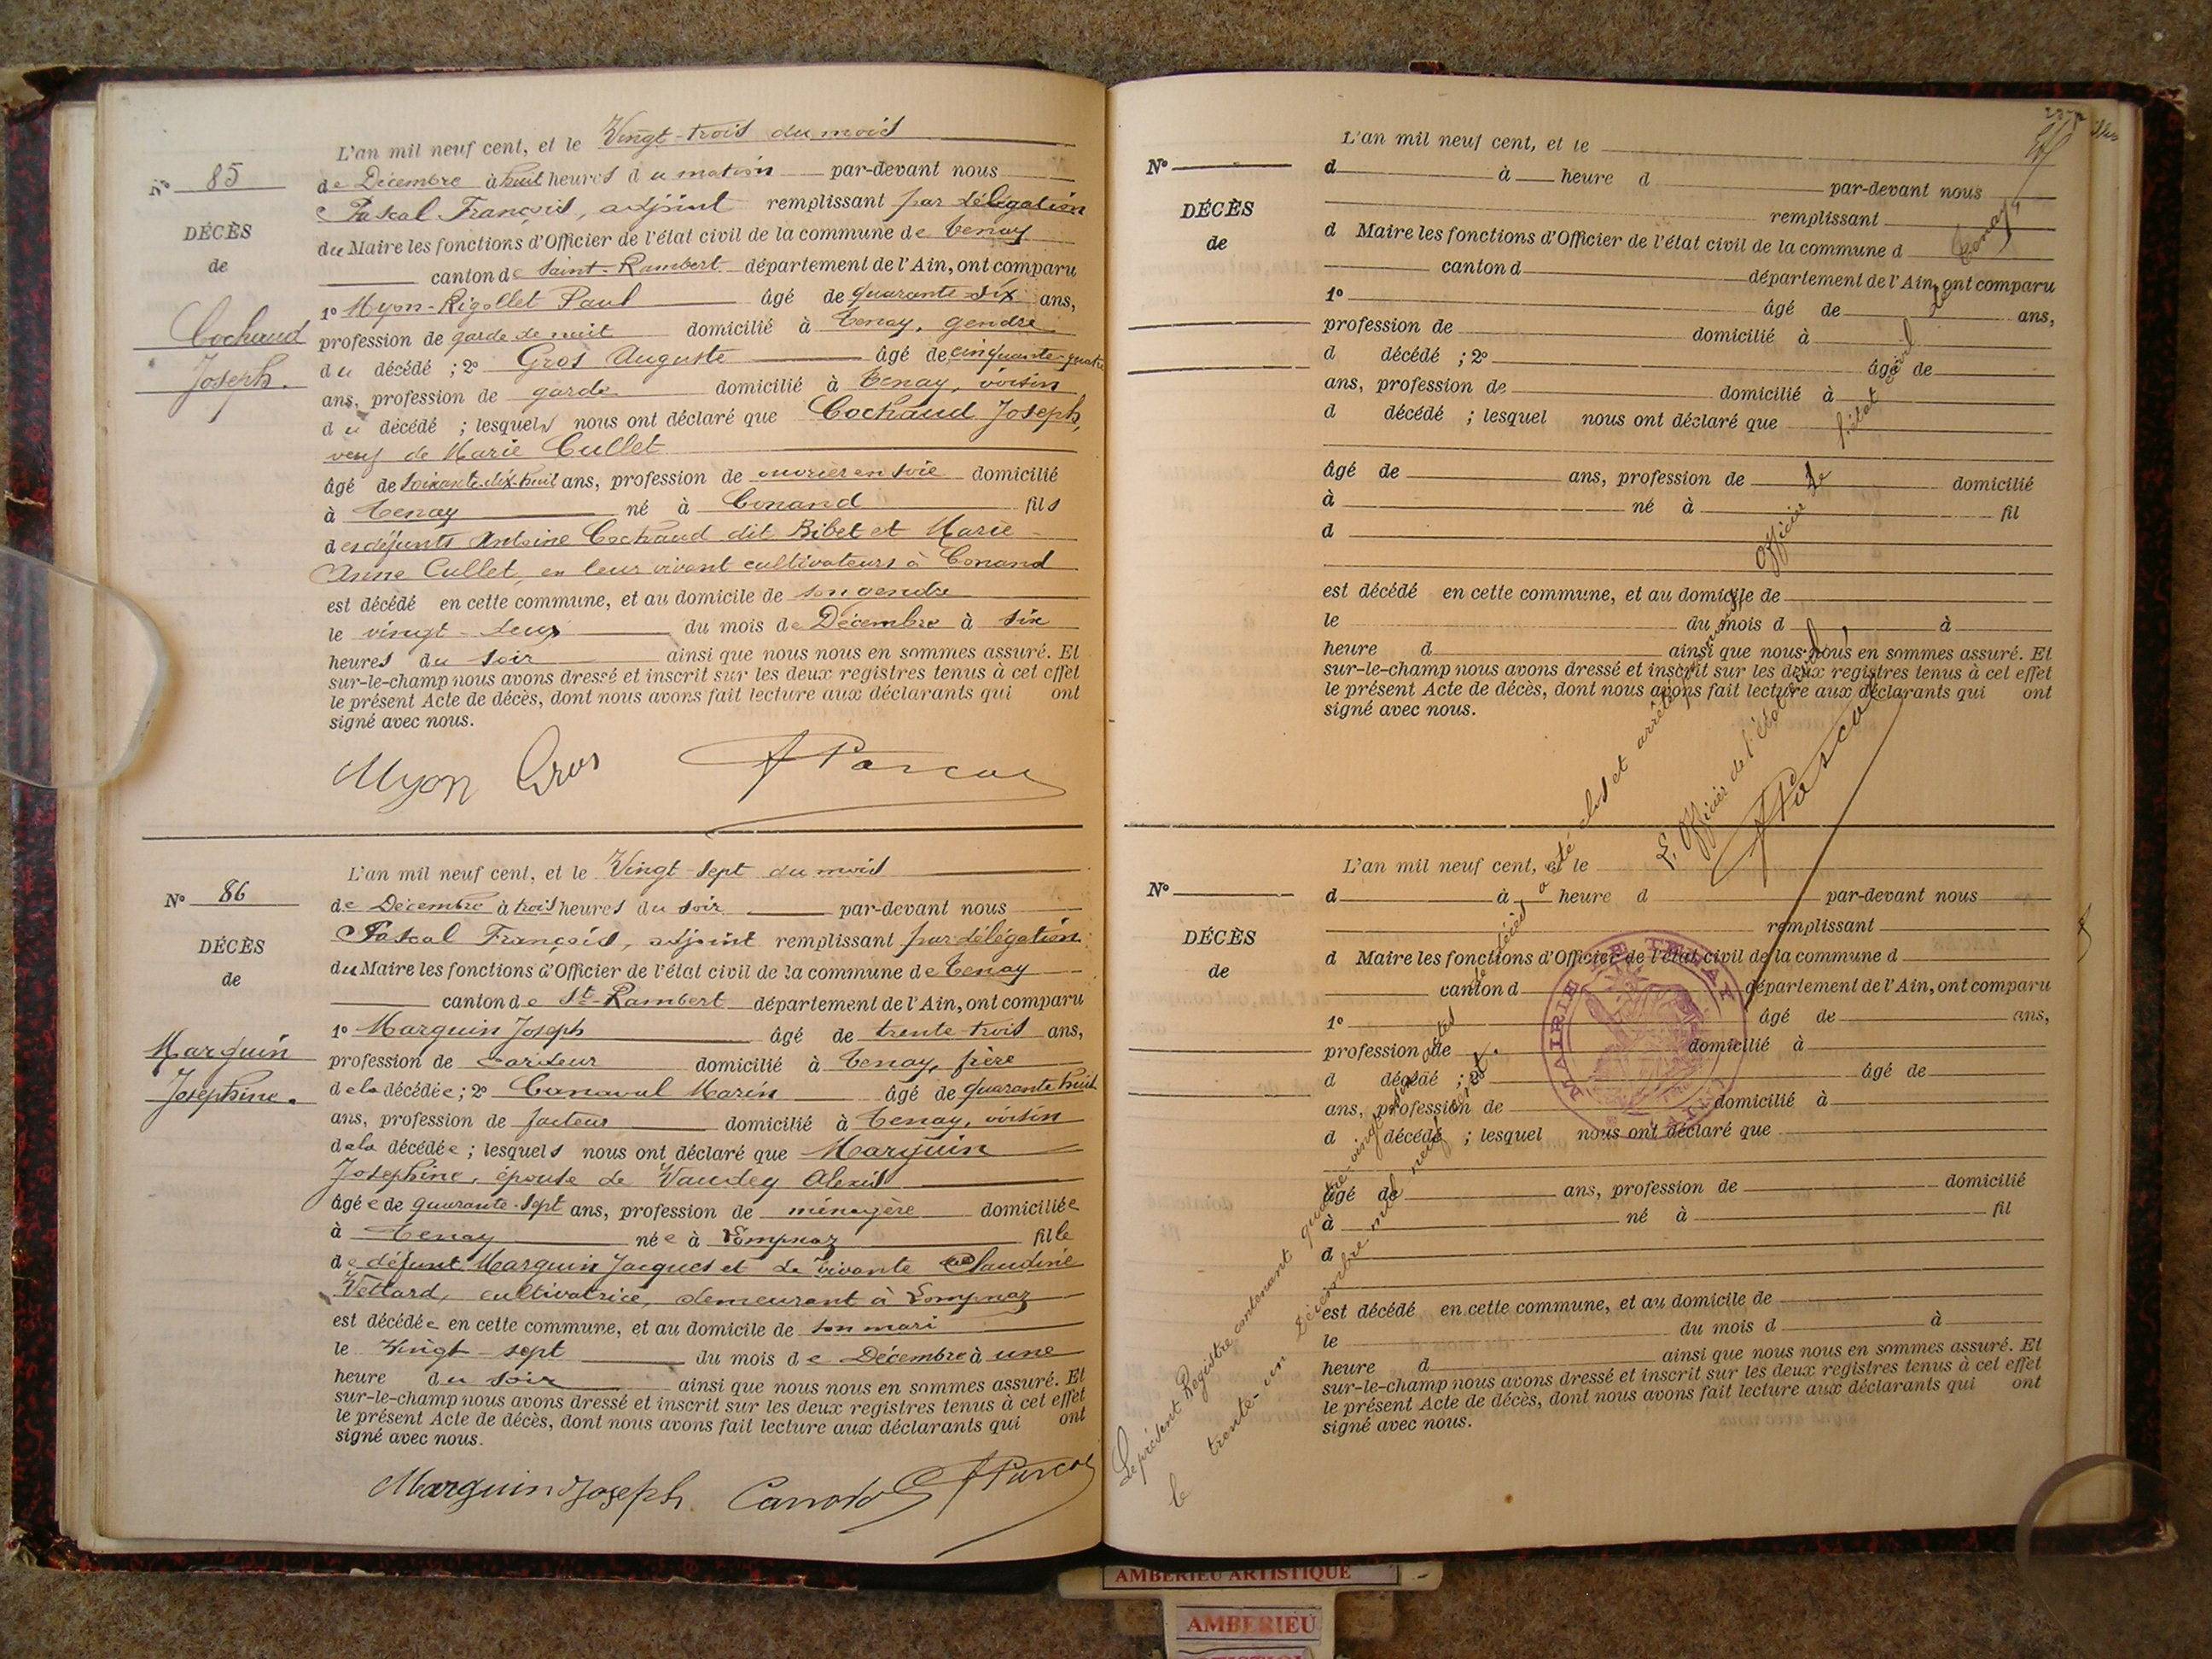 N° 85
DÉCÈS
de
Cochaud
Joseph.
L'an mil neuf cent, et le Vingt-trois du mois
de Décembre à huit heures du matin par-devant nous
Pascal François, adjoint remplissant par délégation
du Maire les fonctions d'Officier de l'état civil de la commune de Tenay
canton de Saint-Rambert département de l'Ain, ont comparu
1° Myon-Rigollet Paul âgé de quarante-six ans,
profession de garde de nuit domicilié à Tenay, gendre
du décédé ; 2° Gros Auguste âgé de cinquante-quatre
ans, profession de garde domicilié à Tenay, voisin
du décédé ; lesquels nous ont déclaré que Cochaud Joseph,
veuf de Marie Cullet
âgé de soixante-dix-huit ans, profession de ouvrier en soie domicilié
à Tenay né à Conand fils
des défunts Antoine Cochaud dit Bibet et Marie
Anne Cullet, en leur vivant cultivateurs à Conand
est décédé en cette commune, et au domicile de son gendre
le vingt-deux du mois de Décembre à six
heures du soir ainsi que nous nous en sommes assuré. Et
sur-le-champ nous avons dressé et inscrit sur les deux registres tenus à cet effet
le présent Acte de décès, dont nous avons fait lecture aux déclarants qui ont
signé avec nous.
Myon Gros APascal
N° 86
DÉCÈS
de
Marquin
Josephine.
L'an mil neuf cent, et le Vingt-sept du mois
de Décembre à trois heures du soir par-devant nous
Pascal François, adjoint remplissant par délégation
du Maire les fonctions d'Officier de l'état civil de la commune de Tenay
canton de St-Rambert département de l'Ain, ont comparu
1° Marquin Joseph âgé de trente-trois ans,
profession de cardeur domicilié à Tenay, frère
de la décédée ; 2° Marin âgé de quarante huit
ans, profession de facteur domicilié à Tenay, voisin
de la décédée ; lesquels nous ont déclaré que Marquin
Josephine, épouse de Vaudey Alexis
âgée de quarante-sept ans, profession de ménagère domiciliée
à Tenay née à Lompnaz fille
de défunt Marquin Jacques et de vivante Claudine
Vettard, cultivatrice, demeurant à Lompnaz
est décédée en cette commune, et au domicile de son mari
le Vingt-sept du mois de Décembre à une
heure du soir ainsi que nous nous en sommes assuré. Et
sur-le-champ nous avons dressé et inscrit sur les deux registres tenus à cet effet
le présent Acte de décès, dont nous avons fait lecture aux déclarants qui ont
signé avec nous.
Marquin Joseph APascal
N°
DÉCÈS
de
L'an mil neuf cent, et le
d à heure d par-devant nous
remplissant
d Maire les fonctions d'Officier de l'état civil de la commune d
canton d département de l'Ain, ont comparu
1° âgé de ans,
profession de domicilié à
d décédé ; 2° âgé de
ans, profession de domicilié à
d décédé ; lesquel nous ont déclaré que
âgé de ans, profession de domicilié
à né à fil
d
est décédé en cette commune, et au domicile de
le du mois d à
heure d ainsi que nous nous en sommes assuré. Et
sur-le-champ nous avons dressé et inscrit sur les deux registres tenus à cet effet
le présent Acte de décès, dont nous avons fait lecture aux déclarants qui ont
signé avec nous.
N°
DÉCÈS
de
L'an mil neuf cent, et le
d à heure d par-devant nous
remplissant
d Maire les fonctions d'Officier de l'état civil de la commune d
canton d département de l'Ain, ont comparu
1° âgé de ans,
profession de domicilié à
d décédé ; 2° âgé de
ans, profession de domicilié à
d décédé ; lesquel nous ont déclaré que
âgé de ans, profession de domicilié
à né à fil
d
est décédé en cette commune, et au domicile de
le du mois d à
heure d ainsi que nous nous en sommes assuré. Et
sur-le-champ nous avons dressé et inscrit sur les deux registres tenus à cet effet
le présent Acte de décès, dont nous avons fait lecture aux déclarants qui ont
signé avec nous.
Le présent Registre contenant quatre-vingt-six actes de décès a été clos et arrêté par nous, Officier de l'état civil de Tenay,
le trente-un Décembre mil neuf cent.
L'Officier de l'état civil,
APascal
MAIRIE DE TENAY
AMBERIEU ARTISTIQUE
AMBERIEU